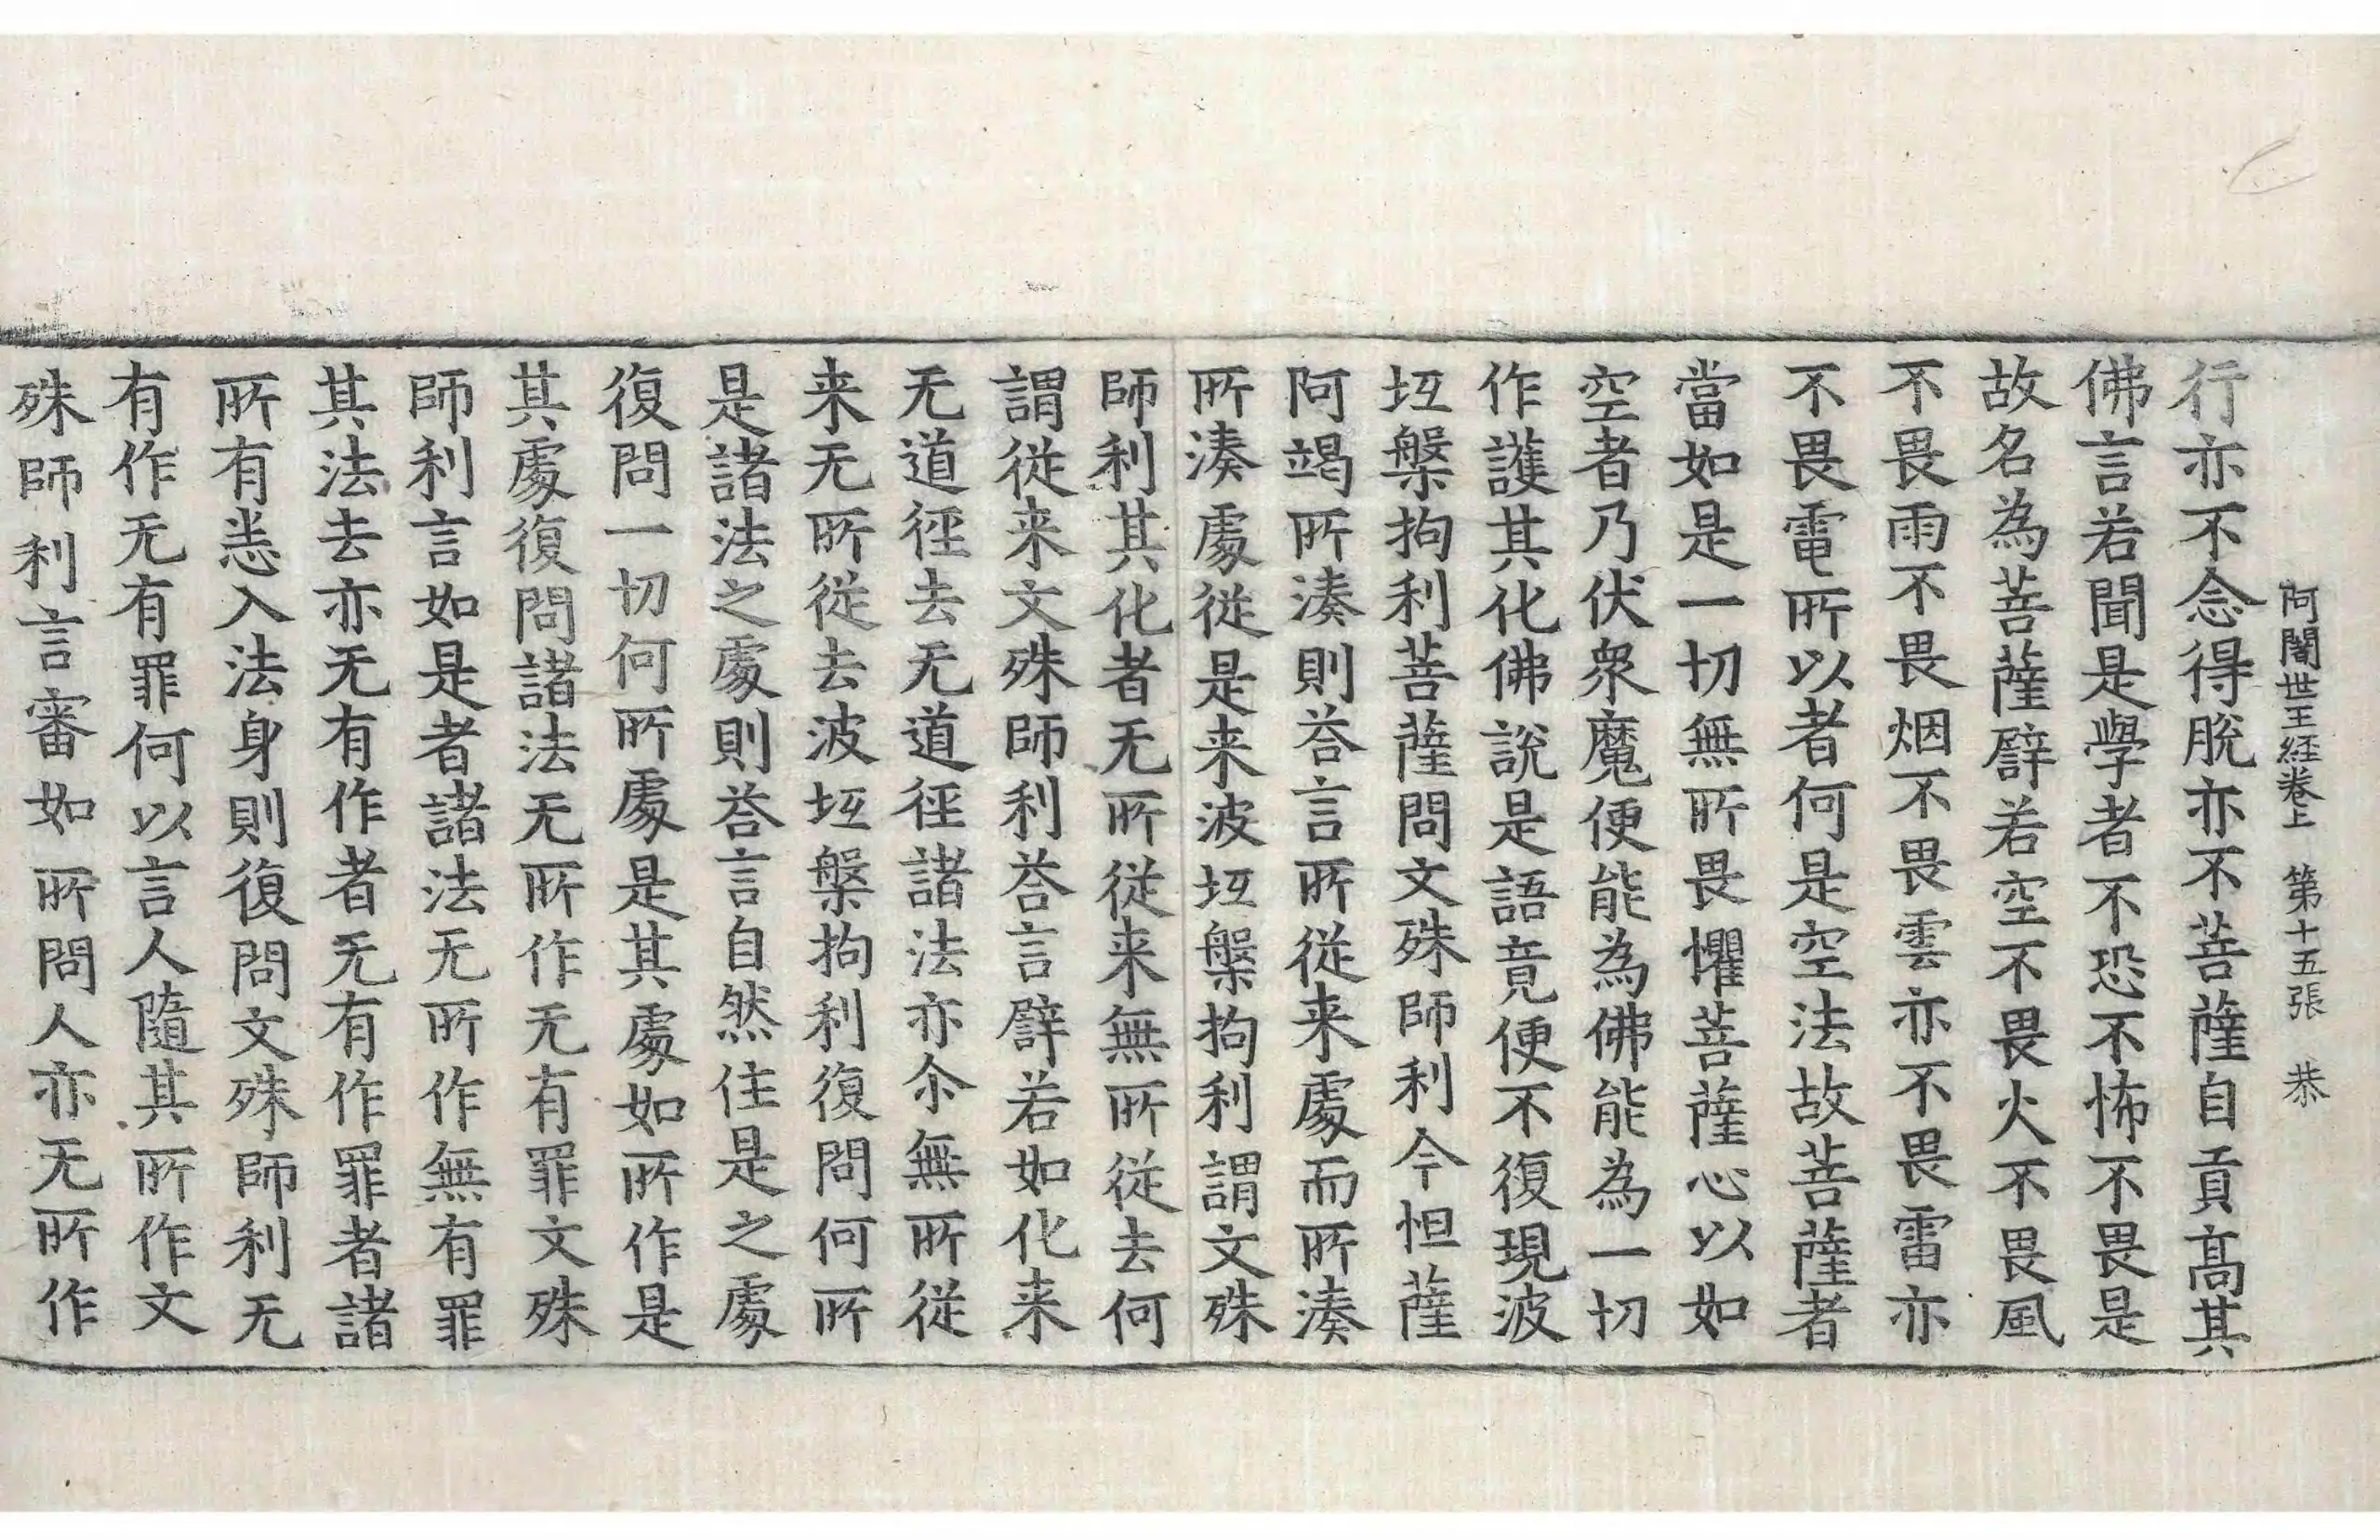 阿闍世王経卷上 第十五張 恭
行亦不念得脫亦不菩薩自貢髙其
佛言若聞是學者不恐不怖不畏是
故名為菩薩譬若空不畏火不畏風
不畏雨不畏烟不畏雲亦不畏雷亦
不畏電所以者何是空法故菩薩者
當如是一切無所畏懼菩薩心以如
空者乃伏衆魔便能為佛能為一切
作護其化佛說是語竟便不復現波
坻槃拘利菩薩問文殊師利今怛薩
阿竭所湊則荅言所從来處而所湊
所湊處從是来波坻槃拘利謂文殊
師利其化者无所從来無所從去何
謂從来文殊師利荅言譬若如化来
无道徑去无道徑諸法亦尒無所從
来无所從去波坻槃拘利復問何所
是諸法之處則荅言自然住是之處
復問一切何所處是其處如所作是
其處復問諸法无所作无有罪文殊
師利言如是者諸法无所作無有罪
其法去亦无有作者无有作罪者諸
所有悉入法身則復問文殊師利无
有作无有罪何以言人隨其所作文
殊師利言審如所問人亦无所作